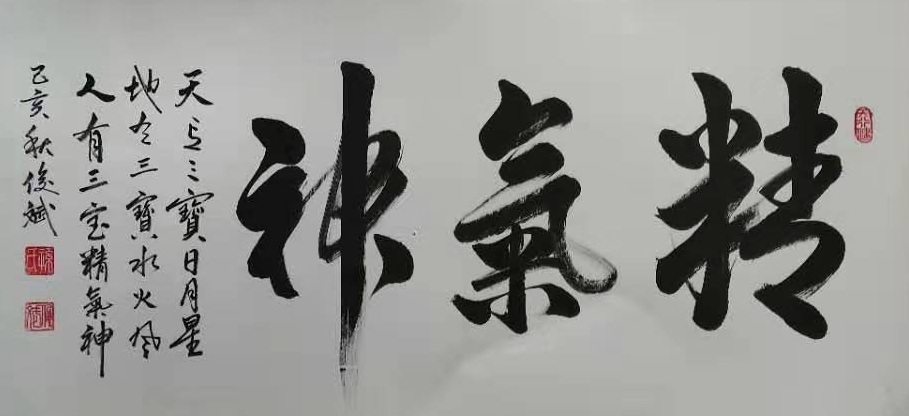 精氣神
天有三寶日月星
地有三寶水火風
人有三宝精氣神
己亥秋俊斌